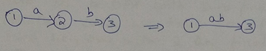 1 a 2 b 3 ⇒ 1 ab 3